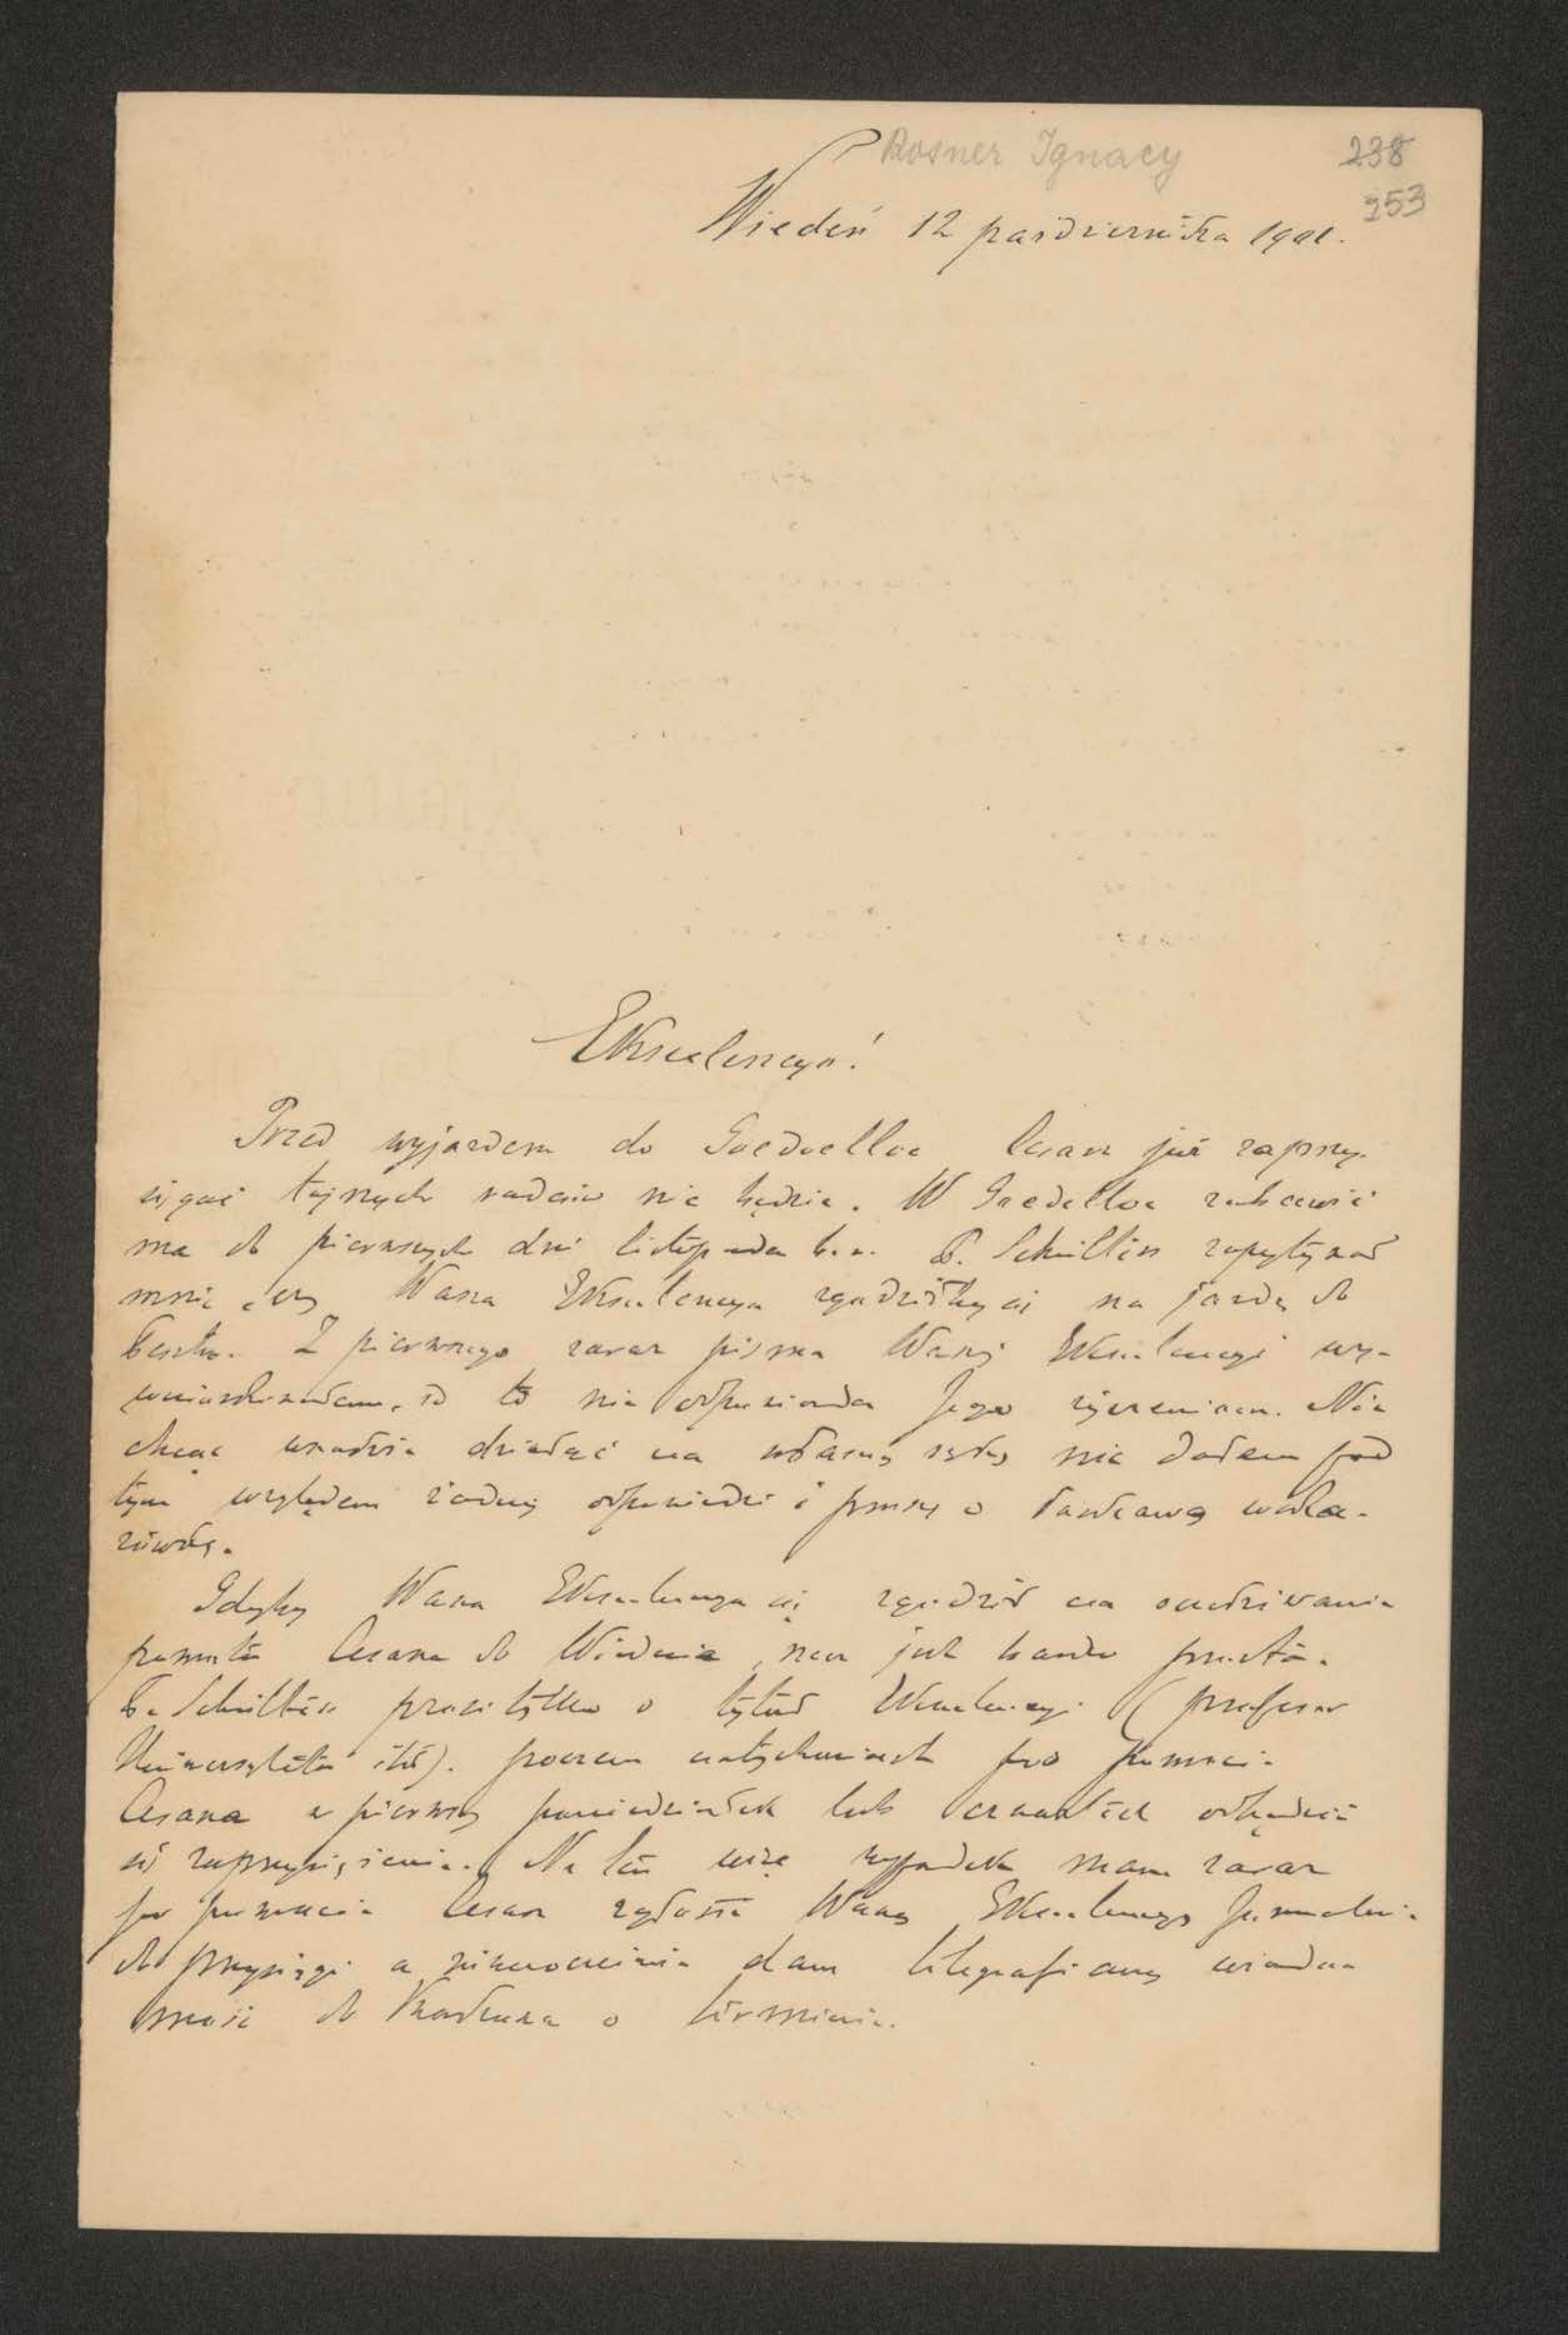 Rosner Ignacy 238
253
Wiedeń 12 października 1901.
Ekscelencyo!
Przed wyjazdem do Goedoelloe Cesarz już zaprzy-
sięgać tajnych radców nie będzie. W Goedelloe zabawić
ma do pierwszych dni listopada b.r. P. Schulltes zapytywał
mnie, czy Wasza Ekscelencya zgodziłby się na jazdę do
Pesztu. Z pierwszego zaraz pisma Waszej Ekscelencyi wy-
wnioskowałem, że to nie odpowiada Jego życzeniom. Nie
chcąc wszakże działać na własną rękę nie dałem pod
tym względem żadnej odpowiedzi i proszę o łaskawą wska-
zówkę.
Gdyby Wasza Ekscelencya się zgodził na oczekiwanie
powrotu Cesarza do Wiednia, rzecz jest bardzo prosta.
P. prosi tylko o tytuł Ekscelencyi (profesor
Uniwersytetu itd). poczem natychmiast po powrocie
Cesarza w pierwszy poniedziałek lub czwartek odbędzie
się zaprzysiężenie. Na ten więc wypadek mam zaraz
po powrocie Cesarza Waszą Ekscelencyę formalnie
do przysięgi a równocześnie dam telegraficzną wiado-
mość do Krakowa o terminie.